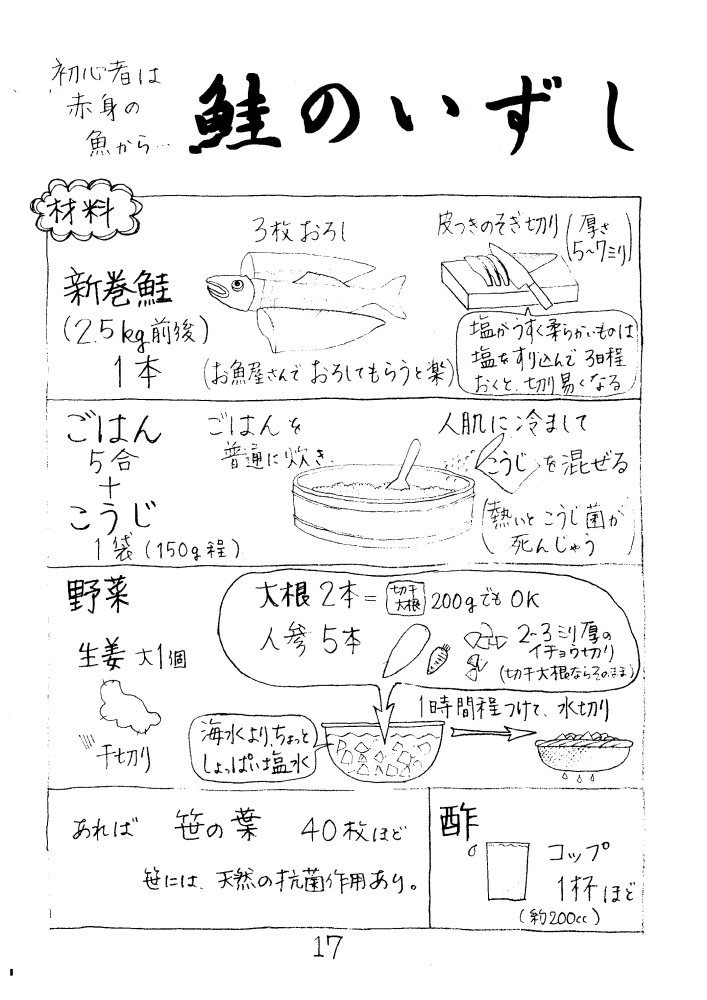 初心者は
赤身の
魚から…
鮭のいずし
材料
新巻鮭
(2.5kg前後)
1本
3枚おろし
(お魚屋さんでおろしてもらうと楽)
皮つきのそぎ切り(厚さ
5~7ミリ)
塩がうすく柔らかいものは
塩をすり込んで3日程
おくと、切り易くなる
ごはん
5合
+
こうじ
1袋(150g程)
ごはんを
普通に炊き
人肌に冷まして
こうじを混ぜる
(熱いとこうじ菌が
死んじゃう)
野菜
生姜 大1個
千切り
大根2本=切干大根200gでもOK
人参5本
2~3ミリ厚の
イチョウ切り
(切干大根ならそのまま)
海水より、ちょっと
しょっぱい塩水
1時間程つけて、水切り
あれば 笹の葉 40枚ほど
笹には、天然の抗菌作用あり。
酢
コップ
1杯ほど
(約200cc)
17